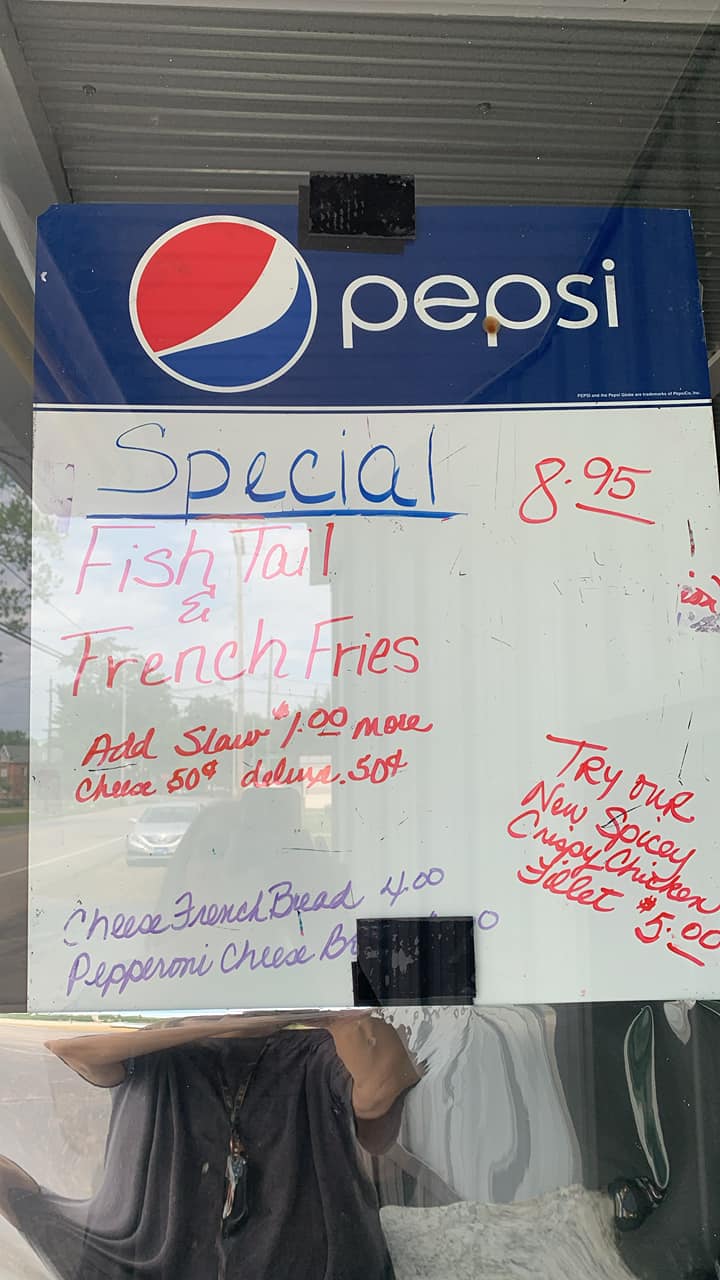 pepsi
PEPSI and the Pepsi Globe are trademarks of PepsiCo, Inc.
Special 8.95
Fish Tail
&
French Fries
Add Slaw $1.00 more
Cheese 50¢ deluxe .50¢
Try our
New Spicey
Crispy Chicken
Fillet $5.00
Cheese French Bread 4.00
Pepperoni Cheese